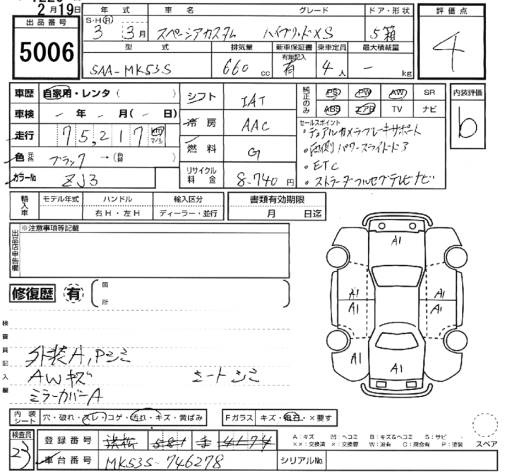 2月19日
出品番号
5006
年式 車名 グレード ドア・形状
S・H(R) 3年 3月 スペーシアカスタム ハイブリッドXS 5箱
型式 排気量 新車保証書 乗車定員 最大積載量
有無記入
5AA-MK53S 660cc 有 4人 - kg
評価点
4
車歴 自家用・レンタ( )
車検 - 年 - 月(- 日)
走行 75,217
色 ブラック→( )
カラーNo ZJ3
シフト IAT
冷房 AAC
燃料 G
リサイクル料金 8,740円
純正のみ
PS PW AW SR
ABS エアB TV ナビ
内装評価
b
セールスポイント
・デュアルカメラブレーキサポート
・両側パワースライドドア
・ETC
・ストラーダフルセグテレビナビ
輸入車
モデル年式 ハンドル 輸入区分
右H・左H ディーラー・並行
書類有効期限
月 日迄
出品店申告欄
※注意事項等記載
修復歴 有 箇所
検査員記入欄
外装A,Pシミ
AWキズ シートシミ
ミラーカバーA
A1
A1
A1
A1
A1
A1
A1
内装シート 穴・破れ・スレ・コゲ・汚れ・キズ・黄ばみ
Fガラス キズ・飛石・×要す
スペア
検査員
23
登録番号 浜松 581
車台番号 MK53S-746278
シリアルNo.
A:キズ M:ヘコミ B:キズ&ヘコミ S:サビ
XX:交換済 X:要交換 W:波有 C:腐食有 P:塗装